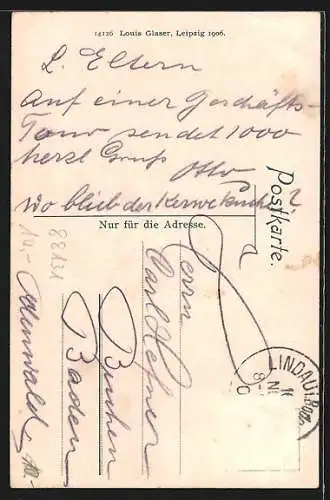 14126 Louis Glaser, Leipzig 1906.
L. Eltern
Auf einer Geschäfts-
Tour sendet 1000
herzl Gruß
Otto
wo blieb der Kerwekuchen?
Postkarte.
Nur für die Adresse.
Herrn
Carl Hefner
Buchen
Baden
Odenwald
88131
10.-
LINDAU i. Bod.